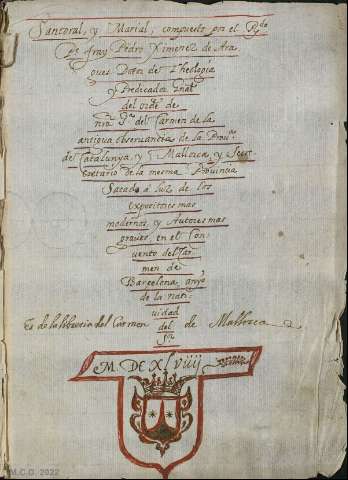 Santoral, y Marial; compuesto por el Rdo
Pe fray Pedro Ximenez de Ara
ques Dotor de Theologia
y Predicador
del ordẽ de
nra Sra del Carmen de la
antigua observancia de la Prouᵃ
de Catalunya, y Mallorca, y Secr
etario de la mesma Prouincia
Sacado á luz de los
expositores mas
modernos y Autores mas
graues, en el Con
uento del Car
men de
Barcelona anyo
de la nati
uidad
Es de la libreria del Carmen del de Mallorca
Sr
M.DC.XLviiij
M.C.C. 2022